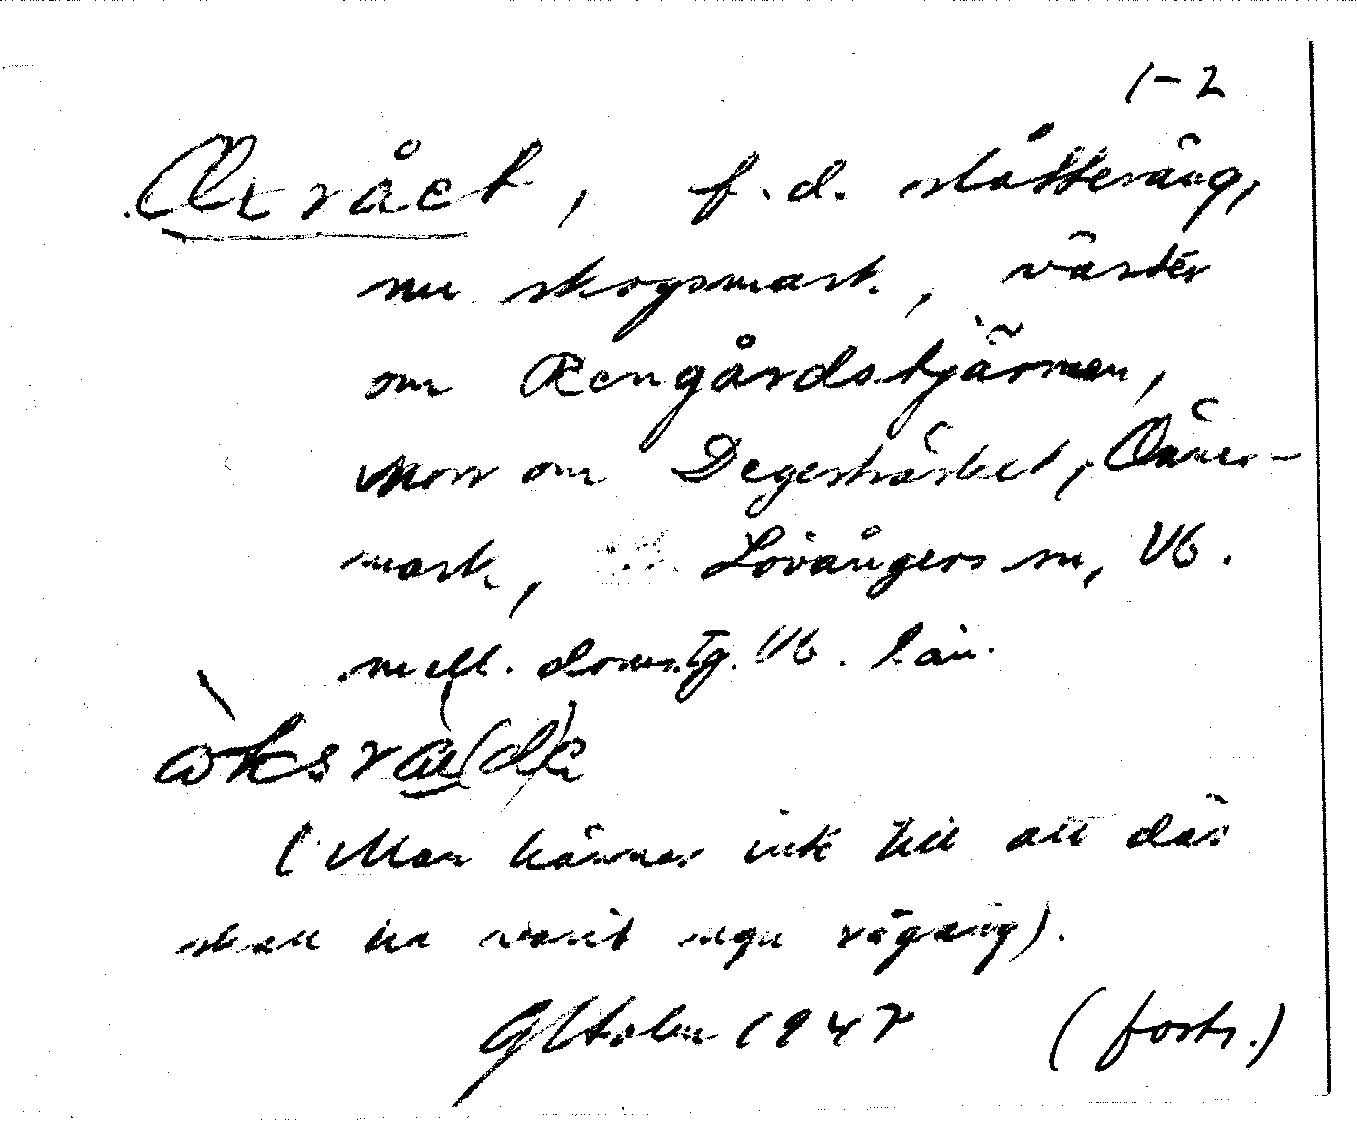 1-2
Oxrået, f.d. slåtteräng,
nu skogsmark, väster
om Rengårdstjärnen,
norr om Degerträsket, Åner-
mark, Lövångers sn, Vb.
mell. doms.tg. Vb. län.
(Man känner ink till att där
skall ha varit ngn rågång).
GHolm 1947 (forts.)